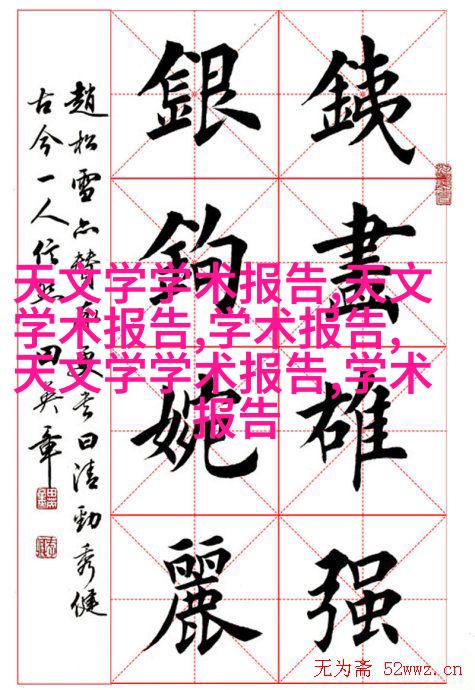 銕畫雄强
銀鉤婉麗
趙松雪亦贊更書曰清勁秀健
古今一人信然 田英章
天文学学术报告,天文
学术报告,学术报告,
天文学学术报告,学术
报告
无为斋 52wwz.cn